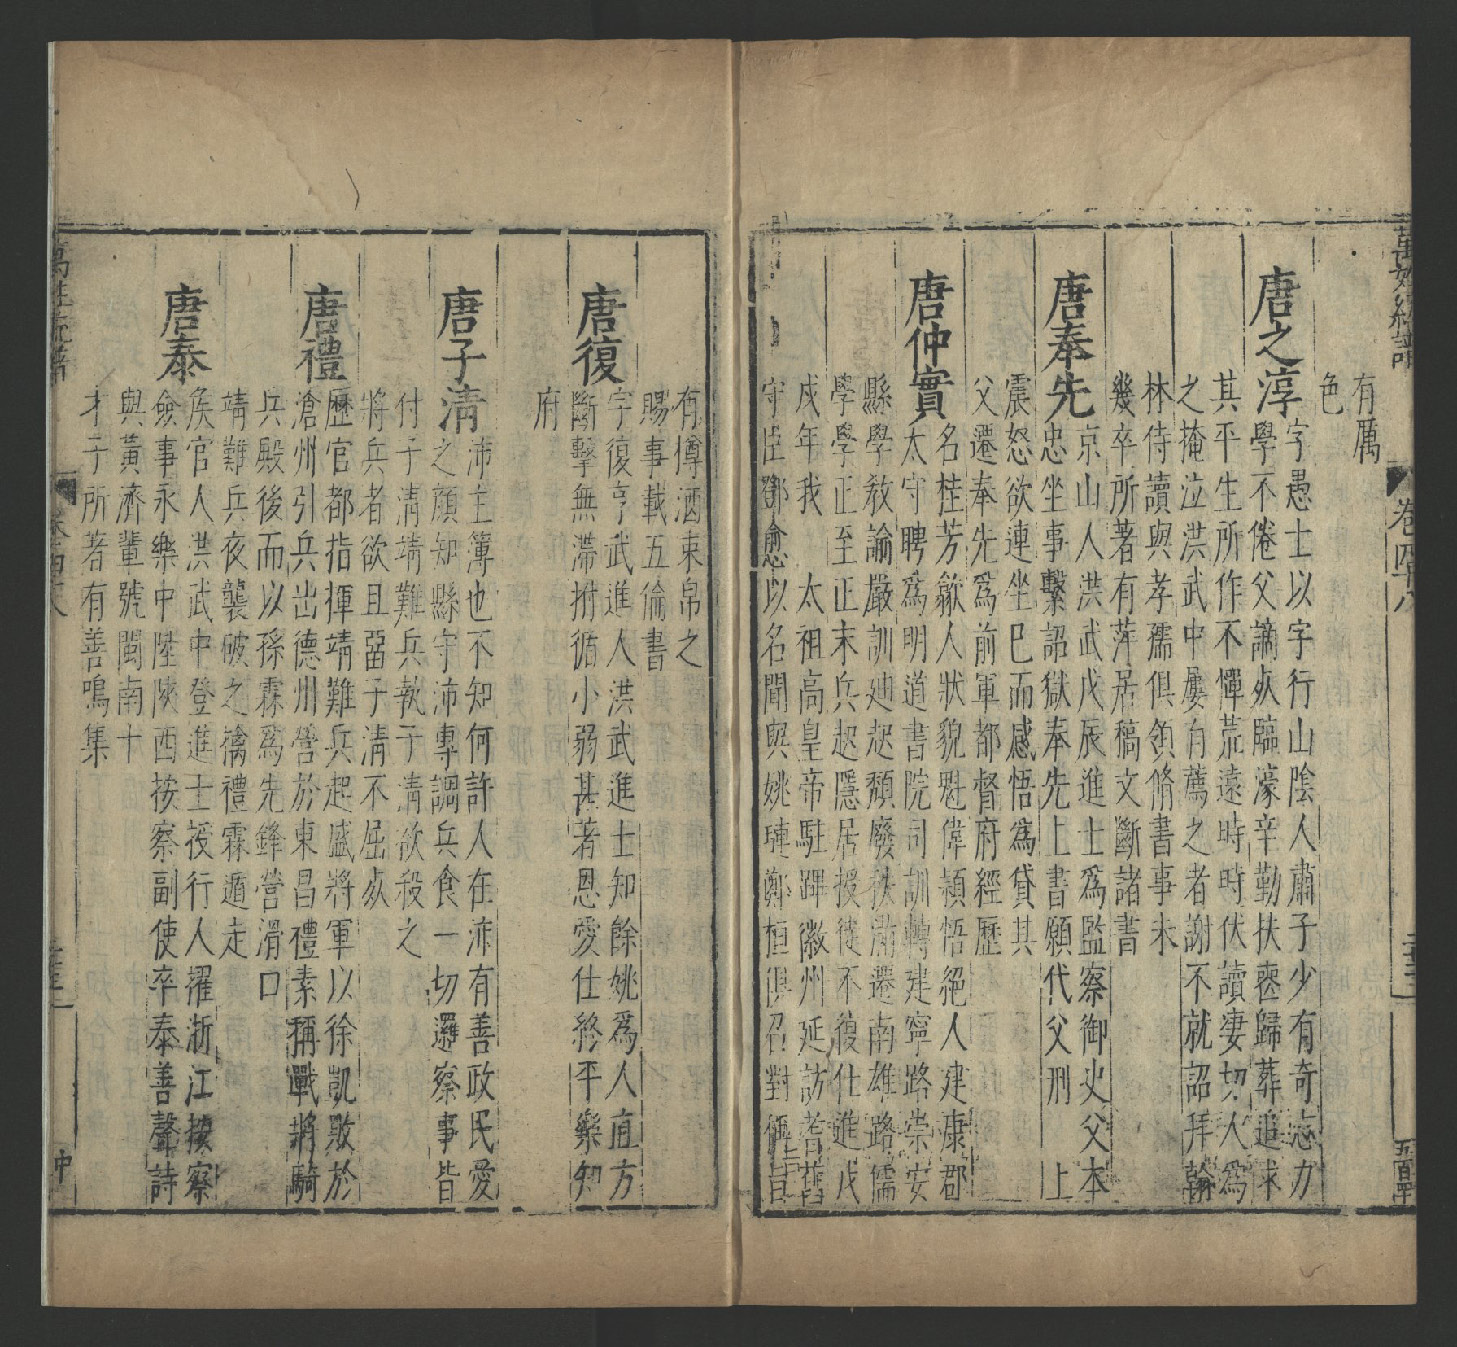 有厲
色
唐之淳
字愚士以字行山陰人肅子少有奇志力
學不倦父謫死臨濠辛勤扶櫬歸葬追求
其平生所作不憚荒遠時時伏讀淒切人爲
之掩泣洪武中屢有薦之者謝不就詔拜翰
林侍讀與孝孺俱領脩書事未
幾卒所著有萍居稿文斷諸書
唐奉先
京山人洪武戊辰進士爲監察御史父本
忠坐事繫詔獄奉先上書願代父刑 上
震怒欲連坐巳而感悟爲貸其
父遷奉先爲前軍都督府經歷
唐仲實
名桂芳歙人狀貌魁偉穎悟絕人建康郡
太守聘爲明道書院司訓轉建寧路崇安
縣學教諭嚴訓廸起頹廢秩滿遷南雄路儒
學學正至正末兵起隱居授徒不復仕進戊
戍年我 太祖高皇帝駐蹕徽州延訪耆舊
守臣鄧愈以名聞與姚璉鄭恒俱召對稱旨
有樽酒束帛之
賜事載五倫書
唐復
字復亨武進人洪武進士知餘姚爲人直方
斷擊無滯拊循小弱甚著恩愛仕終平樂知
府
唐子清
沛主簿也不知何許人在沛有善政民愛
之顔知縣守沛專調兵食一切邏察事皆
付子清靖難兵執子清欲殺之
將兵者欲且畱子清不屈死
唐禮
歷官都指揮靖難兵起盛將軍以徐凱敗於
滄州引兵出德州營於東昌禮素稱戰將騎
兵殿後而以孫霖爲先鋒營滑口
靖難兵夜襲破之擒禮霖遁走
唐泰
侯官人洪武中登進士授行人擢浙江按察
僉事永樂中陞陝西按察副使卒泰善聲詩
與黃濟輩號閩南十
才子所著有善鳴集